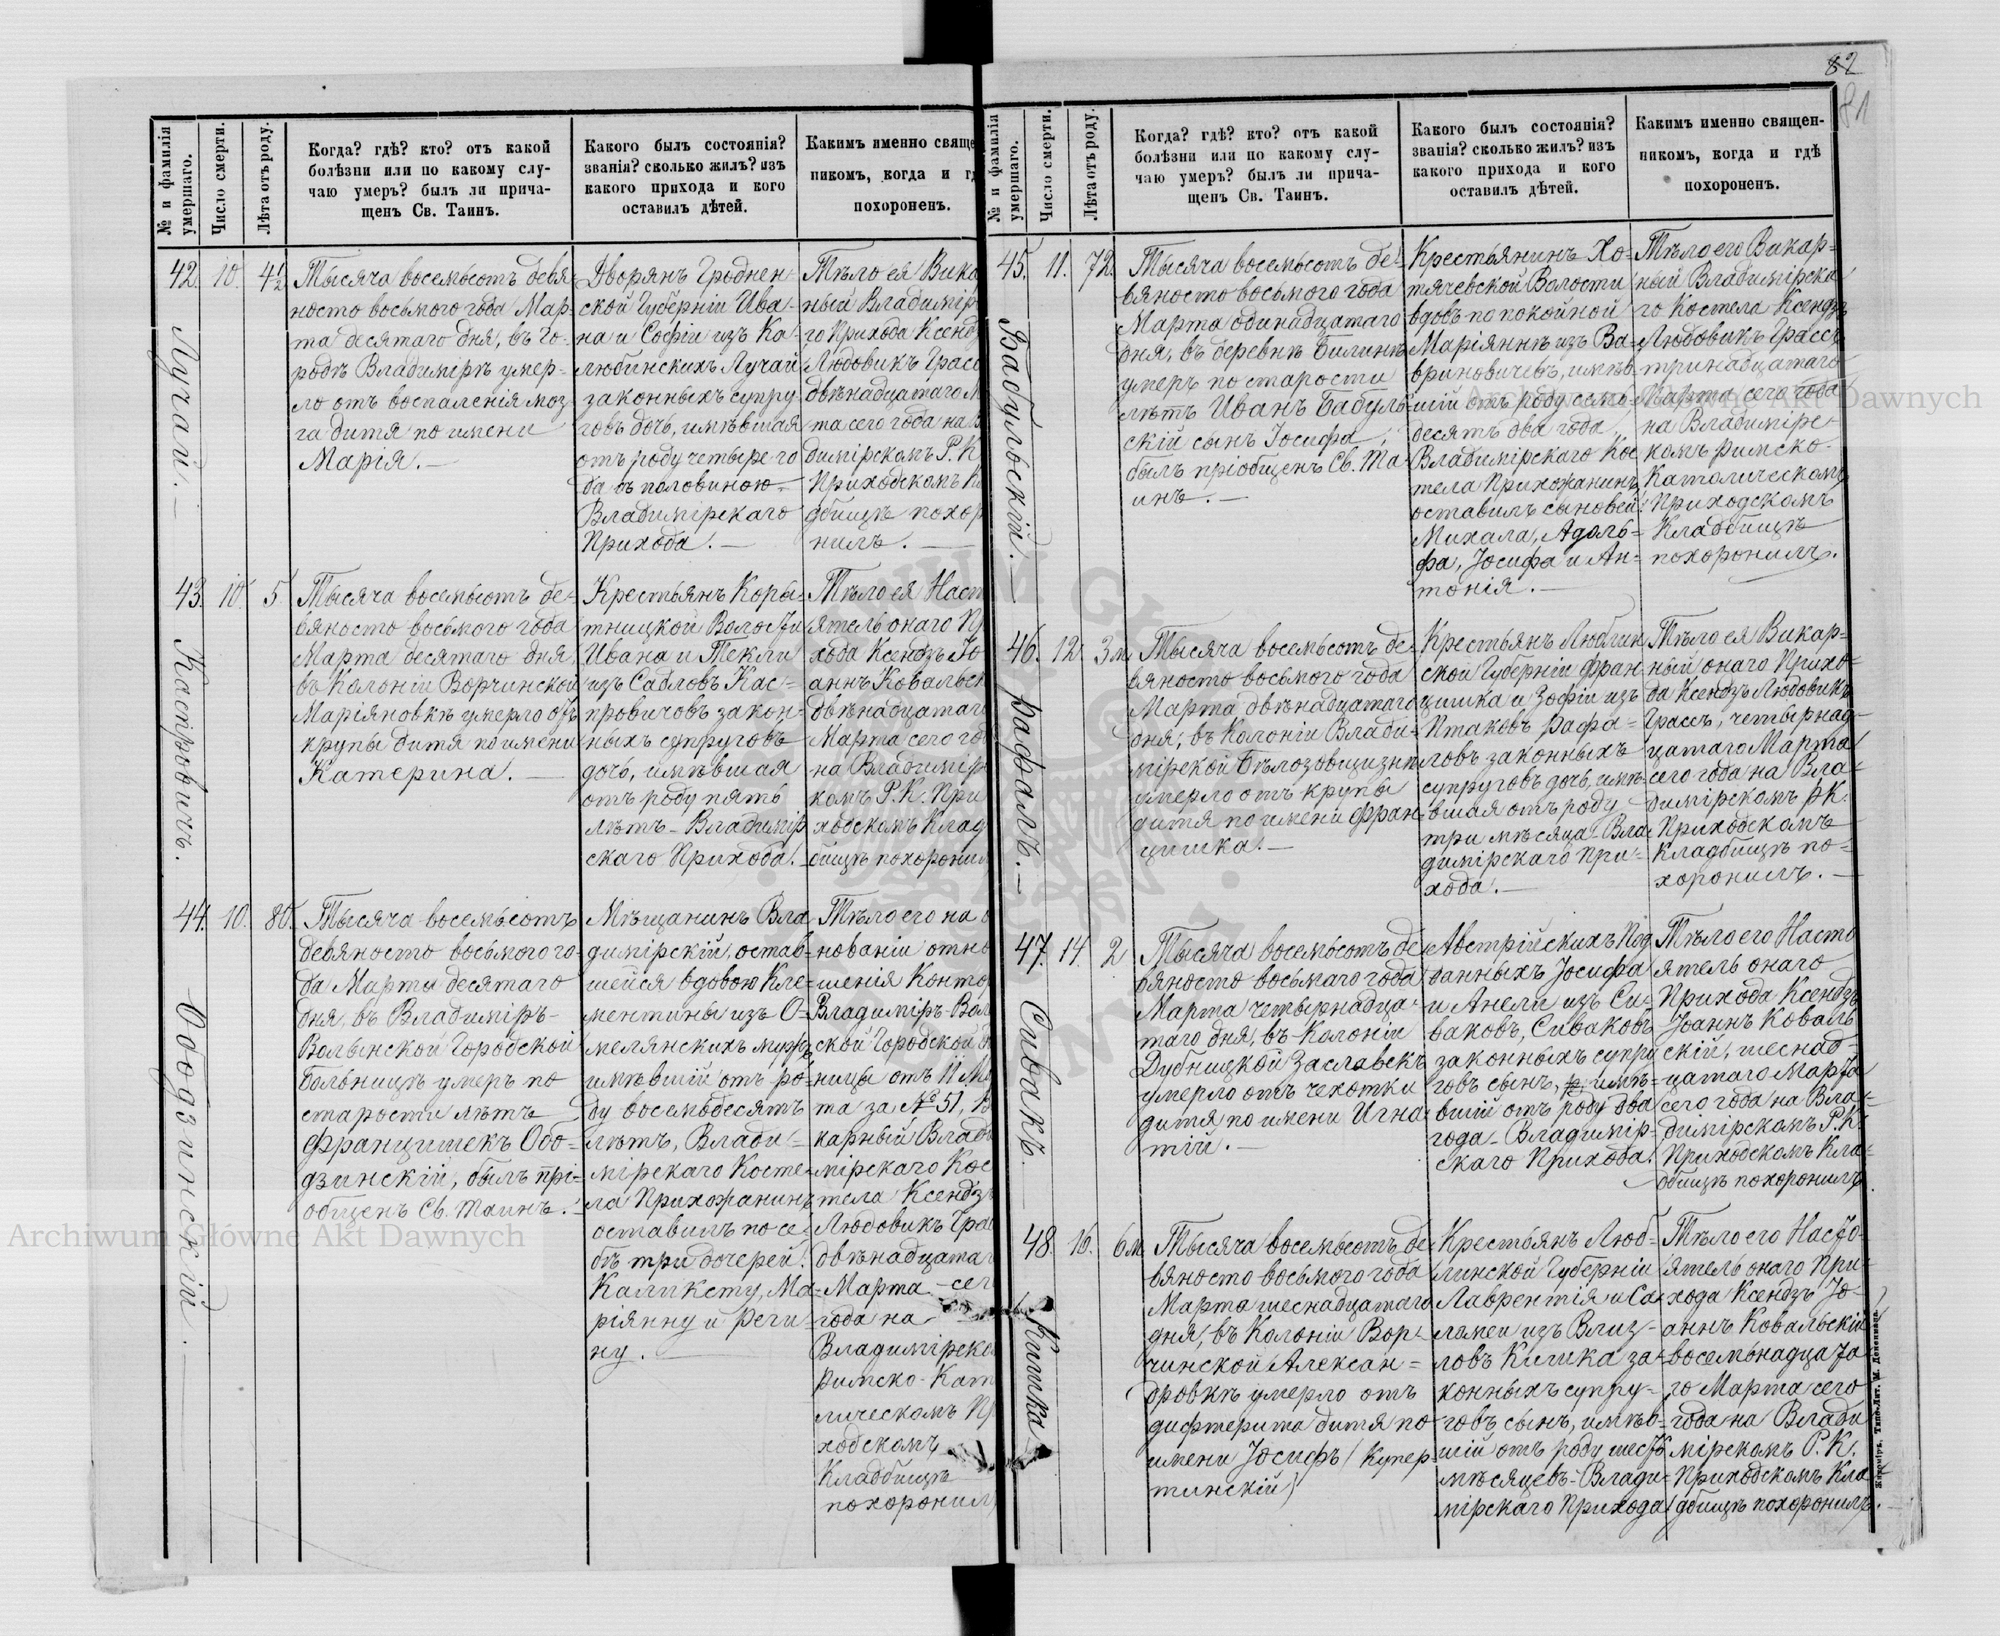 82
81
№ и фамилія умершаго.
Число смерти.
Лѣта отъ роду.
Когда? гдѣ? кто? отъ какой
болѣзни или по какому слу-
чаю умеръ? былъ ли прича-
щенъ Св. Таинъ.
Какого былъ состоянія?
званія? сколько жилъ? изъ
какого прихода и кого
оставилъ дѣтей.
Какимъ именно свяще
никомъ, когда и гд
похороненъ.
42. 10. 4½
Лучай. —
Тысяча восемьсотъ девя-
носто восьмого года Мар-
та десятаго дня, въ го-
родѣ Владимірѣ умер-
ло отъ воспаленія моз
га дитя по имени
Марія. —
Дворянъ Гроднен-
ской Губерніи Ива-
на и Софіи изъ Ка-
любинскихъ Лучай
законныхъ супру
говъ дочь, имѣвшая
отъ роду четыре го
да съ половиною
Владимірскаго
Прихода. —
Тѣло ея Вика
ный Владимір
го Прихода Ксенд
Людовикъ Грасс
двѣнадцатаго М
та сего года на В
димірскомъ Р. К
Приходскомъ К
дбищѣ похор
нилъ. —
43. 10. 5
Каспровичъ.
Тысяча восемьсотъ де-
вяносто восьмого года
Марта десятаго дня
въ Колоніи Ворчинской
Маріяновкѣ умерло отъ
крупы дитя по имени
Катерина. —
Крестьянъ Коры-
тницкой Волости
Ивана и Текли
изъ Сабловъ Кас-
провичовъ закон-
ныхъ супруговъ
дочь, имѣвшая
отъ роду пять
лѣтъ - Владимір
скаго Прихода. -
Тѣло ея Наст
ятель онаго П
хода Ксендзъ Іо
аннъ Ковальск
двѣнадцатаг
Марта сего го
на Владимір
комъ Р. К. При
ходскомъ Клад
бищѣ похорони
44. 10. 80.
Ободзинскій.
Тысяча восемьсотъ
девяносто восьмого го-
да Марта десятаго
дня, въ Владиміръ-
Волынской Городской
Больницѣ умеръ по
старости лѣтъ
Францишекъ Обо-
дзинскій, былъ прі-
общенъ Св. Таинъ. -
Мѣщанинъ Вла
димірскій, остав-
шейся вдовою Кле-
ментины изъ О-
мелянскихъ мужъ
имѣвшій отъ ро-
ду восемьдесятъ
лѣтъ, Влади-
мірскаго Косте-
ла Прихожанинъ
оставилъ по се-
бѣ три дочерей:
Каликсту, Ма-
ріянну и Реги-
ну. —
Тѣло его на о
нованіи отно
шенія Конто
Владиміръ-Вол
ской Городской Б
ницы отъ 11 Ма
та за № 51, В
карный Влад
мірскаго Кос
тела Ксендзъ
Людовикъ Грас
двѣнадцатаг
Марта сег
года на
Владимірско
Римско-Кат
лическомъ Пр
ходскомъ
Кладбищѣ
похоронил
№ и фамилія умершаго.
Число смерти.
Лѣта отъ роду.
Когда? гдѣ? кто? отъ какой
болѣзни или по какому слу-
чаю умеръ? былъ ли прича-
щенъ Св. Таинъ.
Какого былъ состоянія?
званія? сколько жилъ? изъ
какого прихода и кого
оставилъ дѣтей.
Какимъ именно священ-
никомъ, когда и гдѣ
похороненъ.
45. 11. 72.
Бабульскій. —
Тысяча восемьсотъ де-
вяносто восьмого года
Марта одинадцатаго
дня, въ деревнѣ Билинѣ
умеръ по старости
лѣтъ Иванъ Бабуль-
скій сынъ Іосифа,
былъ пріобщенъ Св. Та-
инъ. —
Крестьянинъ Хо-
тячевской Волости
вдовъ по покойной
Маріяннѣ изъ Ва-
вриновичевъ, имѣв
шій отъ роду семь
десятъ два года
Владимірскаго Кос
тела Прихожанинъ
оставилъ сыновей:
Михала, Адоль-
фа, Іосифа и Ан-
тонія. —
Тѣло его Викар-
ный Владимірска
го Костела Ксендзъ
Людовикъ Грассъ
тринадцатаго
Марта сего года
на Владимірс-
комъ Римско-
Католическомъ
Приходскомъ
Кладбищѣ
похоронилъ.
46. 12. 3 м.
Рафалъ. —
Тысяча восемьсотъ де-
вяносто восьмого года
Марта двѣнадцатаго
дня, въ Колоніи Влади-
мірской Бѣлозовщизнѣ
умерло отъ крупы
дитя по имени Фран-
цишка. —
Крестьянъ Люблин
ской Губерніи Фран
цишка и Зофіи изъ
Птаковъ Рафа-
ловъ законныхъ
супруговъ дочь, имѣ-
вшая отъ роду
три мѣсяца - Вла-
димірскаго При-
хода. —
Тѣло ея Викар-
ный онаго Прихо-
да Ксендзъ Людовикъ
Грассъ, четырнад-
цатаго Марта
сего года на Вла-
димірскомъ Р.К.
Приходскомъ
Кладбищѣ по-
хоронилъ. —
47. 14. 2
Сивакъ.
Тысяча восемьсотъ де-
вяносто восьмаго года
Марта четырнадца-
таго дня, въ Колоніи
Дубницкой Заславекъ
умерло отъ чехотки
дитя по имени Игна-
тій. —
Австрійскихъ Под
данныхъ Іосифа
и Анели изъ Си-
ваковъ, Сиваковъ
законныхъ супру
говъ сынъ, имѣ-
вшій отъ роду два
года - Владимір-
скаго Прихода.
Тѣло его Насто
ятель онаго
Прихода Ксендзъ
Іоаннъ Коваль
скій, шеснад-
цатаго Марта
сего года на Вла-
димірскомъ Р.К.
Приходскомъ Кла-
дбищѣ похоронилъ
48. 16. 6 м.
Китка
Тысяча восемьсотъ де-
вяносто восьмого года
Марта шеснадцатаго
дня, въ Колоніи Вор-
чинской Алексан-
дровкѣ умерло отъ
дифтерита дитя по
имени Іосифъ (Купер-
тинскій)
Крестьянъ Люб-
линской Губерніи
Лаврентія и Са-
ломеи изъ Близ-
ловъ Китка за-
конныхъ супру-
говъ сынъ, имѣв-
шій отъ роду шесть
мѣсяцевъ - Влади-
мірскаго Прихода
Тѣло его Насто-
ятель онаго При-
хода Ксендзъ Іо-
аннъ Ковальскій
восемьнадцата
го Марта сего
года на Влади
мірскомъ Р.К.
Приходскомъ Кла
дбищѣ похоронилъ.
Житоміръ. Типо-Лит. М. Дененмана.
Archiwum Główne Akt Dawnych
Archiwum Główne Akt Dawnych